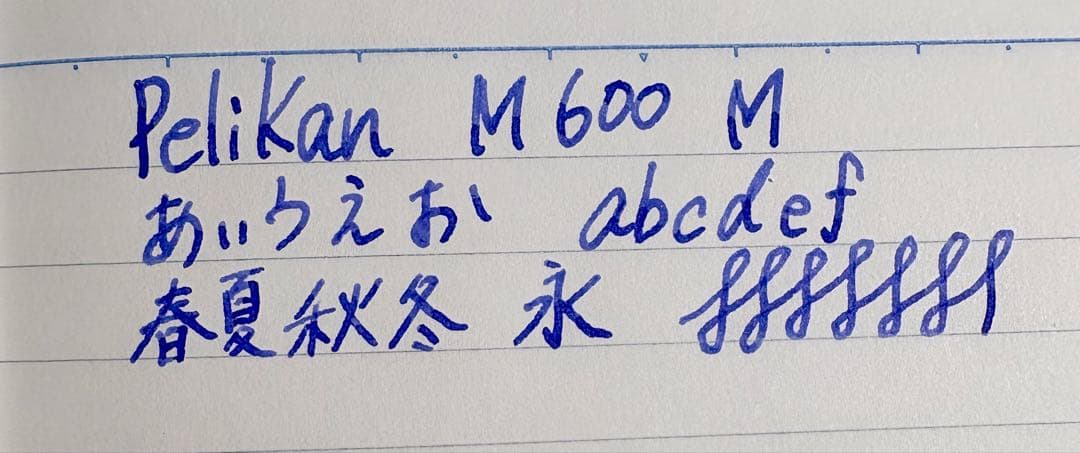 Pelikan M600 M
あいうえお abcdef
春夏秋冬 永